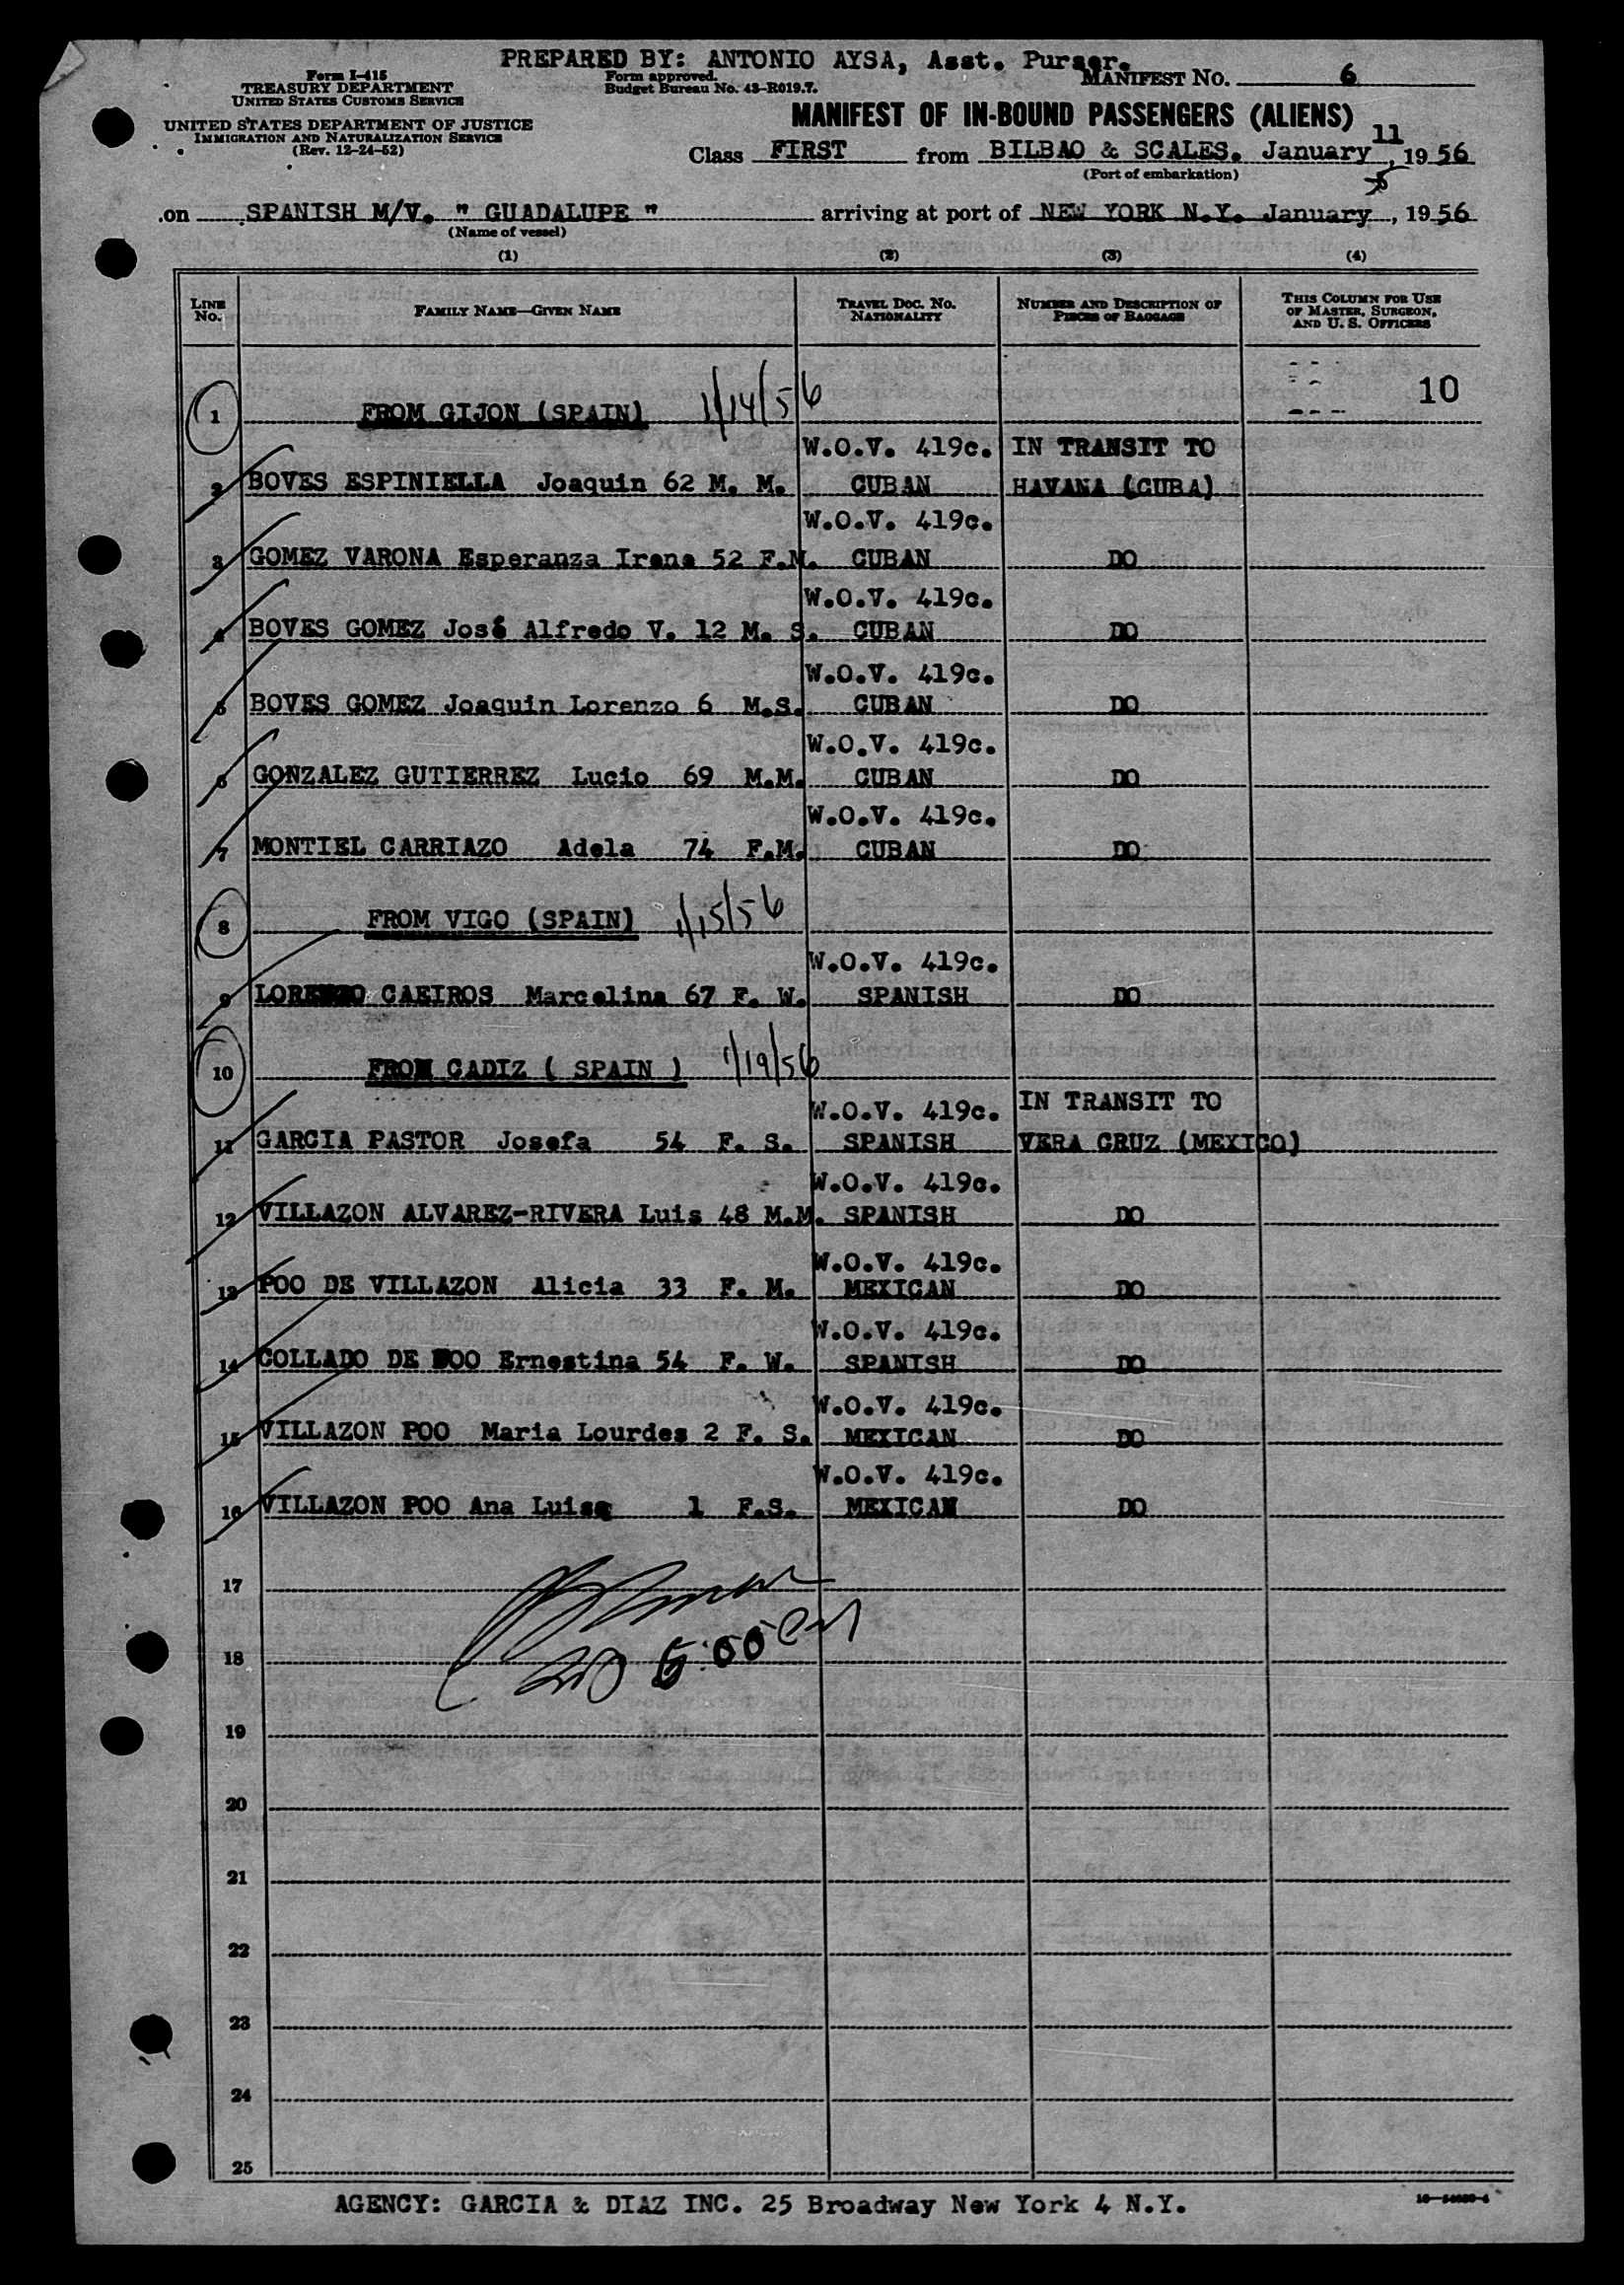 PREPARED BY: ANTONIO AYSA, Asst. Purser.
Form I-415
TREASURY DEPARTMENT
UNITED STATES CUSTOMS SERVICE
UNITED STATES DEPARTMENT OF JUSTICE
IMMIGRATION AND NATURALIZATION SERVICE
(Rev. 12-24-52)
Form approved.
Budget Bureau No. 43-R019.7.
MANIFEST NO. 6
MANIFEST OF IN-BOUND PASSENGERS (ALIENS)
Class FIRST from BILBAO & SCALES. January 11, 1956
(Port of embarkation)
on SPANISH M/V. " GUADALUPE " arriving at port of NEW YORK N.Y. January, 1956
(Name of vessel)
(1) (2) (3) (4)
LINE NO. FAMILY NAME—GIVEN NAME TRAVEL DOC. NO. NATIONALITY NUMBER AND DESCRIPTION OF PIECES OF BAGGAGE THIS COLUMN FOR USE OF MASTER, SURGEON, AND U. S. OFFICERS
10
1 FROM GIJON (SPAIN) 1/14/56
W.O.V. 419c. IN TRANSIT TO
2 BOVES ESPINIELLA Joaquin 62 M. M. CUBAN HAVANA (CUBA)
W.O.V. 419c.
3 GOMEZ VARONA Esperanza Irene 52 F.M. CUBAN DO
W.O.V. 419c.
4 BOVES GOMEZ José Alfredo V. 12 M. S. CUBAN DO
W.O.V. 419c.
5 BOVES GOMEZ Joaquin Lorenzo 6 M.S. CUBAN DO
W.O.V. 419c.
6 GONZALEZ GUTIERREZ Lucio 69 M.M. CUBAN DO
W.O.V. 419c.
7 MONTIEL CARRIAZO Adela 74 F.M. CUBAN DO
8 FROM VIGO (SPAIN) 1/15/56
W.O.V. 419c.
9 LORENZO CAEIROS Marcelina 67 F. W. SPANISH DO
10 FROM CADIZ ( SPAIN ) 1/19/56
W.O.V. 419c. IN TRANSIT TO
11 GARCIA PASTOR Josefa 54 F. S. SPANISH VERA CRUZ (MEXICO)
W.O.V. 419c.
12 VILLAZON ALVAREZ-RIVERA Luis 48 M.M. SPANISH DO
W.O.V. 419c.
13 POO DE VILLAZON Alicia 33 F. M. MEXICAN DO
W.O.V. 419c.
14 COLLADO DE POO Ernestina 54 F. W. SPANISH DO
W.O.V. 419c.
15 VILLAZON POO Maria Lourdes 2 F. S. MEXICAN DO
W.O.V. 419c.
16 VILLAZON POO Ana Luisa 1 F.S. MEXICAN DO
17
18 5:00
19
20
21
22
23
24
25
AGENCY: GARCIA & DIAZ INC. 25 Broadway New York 4 N.Y.